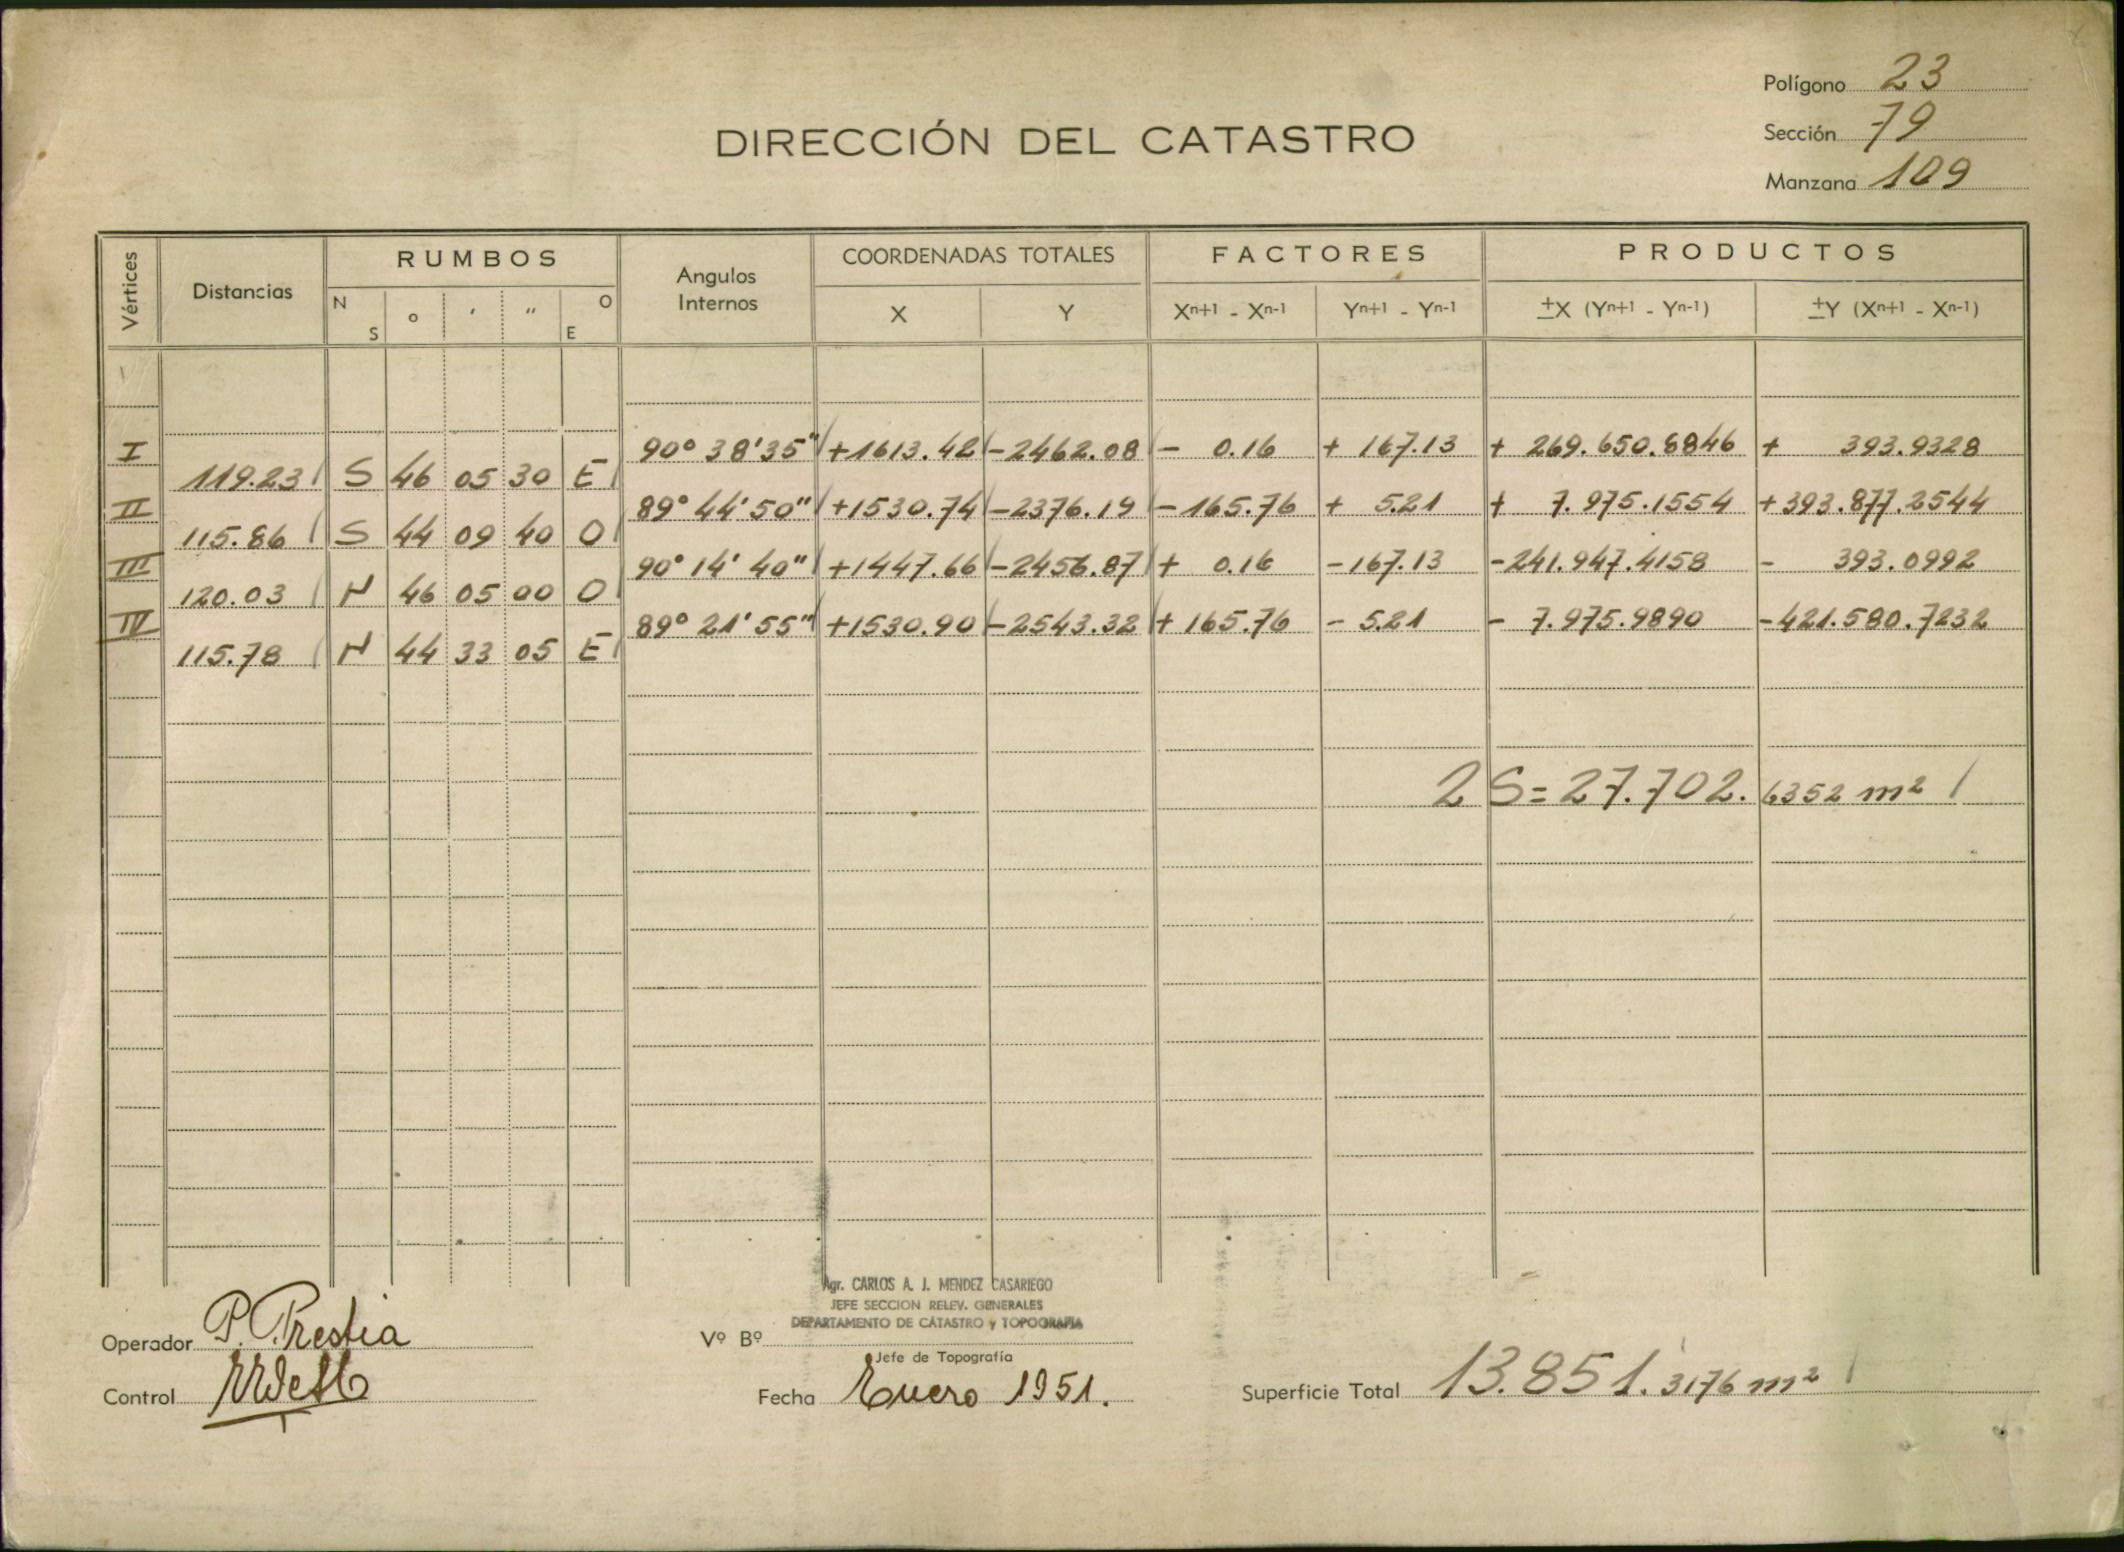 Polígono 23
Sección 79
Manzana 109
DIRECCIÓN DEL CATASTRO
Vértices Distancias RUMBOS Angulos Internos COORDENADAS TOTALES FACTORES PRODUCTOS
N S o ' " O E X Y Xn+1 - Xn-1 Yn+1 - Yn-1 ±X (Yn+1 - Yn-1) ±Y (Xn+1 - Xn-1)
I 90° 38' 35" +1613.42 -2462.08 - 0.16 + 167.13 + 269.650.8846 + 393.9328
119.23 S 46 05 30 E
II 89° 44' 50" +1530.74 -2376.19 -165.76 + 5.21 + 7.975.1554 +393.877.2544
115.86 S 44 09 40 O
III 90° 14' 40" +1447.66 -2456.87 + 0.16 -167.13 -241.947.4158 - 393.0992
120.03 N 46 05 00 O
IV 89° 21' 55" +1530.90 -2543.32 + 165.76 - 5.21 - 7.975.9890 -421.580.7232
115.78 N 44 33 05 E
2 S = 27.702.6352 m²
Agr. CARLOS A. J. MENDEZ CASARIEGO
JEFE SECCION RELEV. GENERALES
DEPARTAMENTO DE CATASTRO y TOPOGRAFIA
Operador P. Prestia
Vº Bº
Jefe de Topografía
Control
Fecha Enero 1951.
Superficie Total 13.851.3176 m²